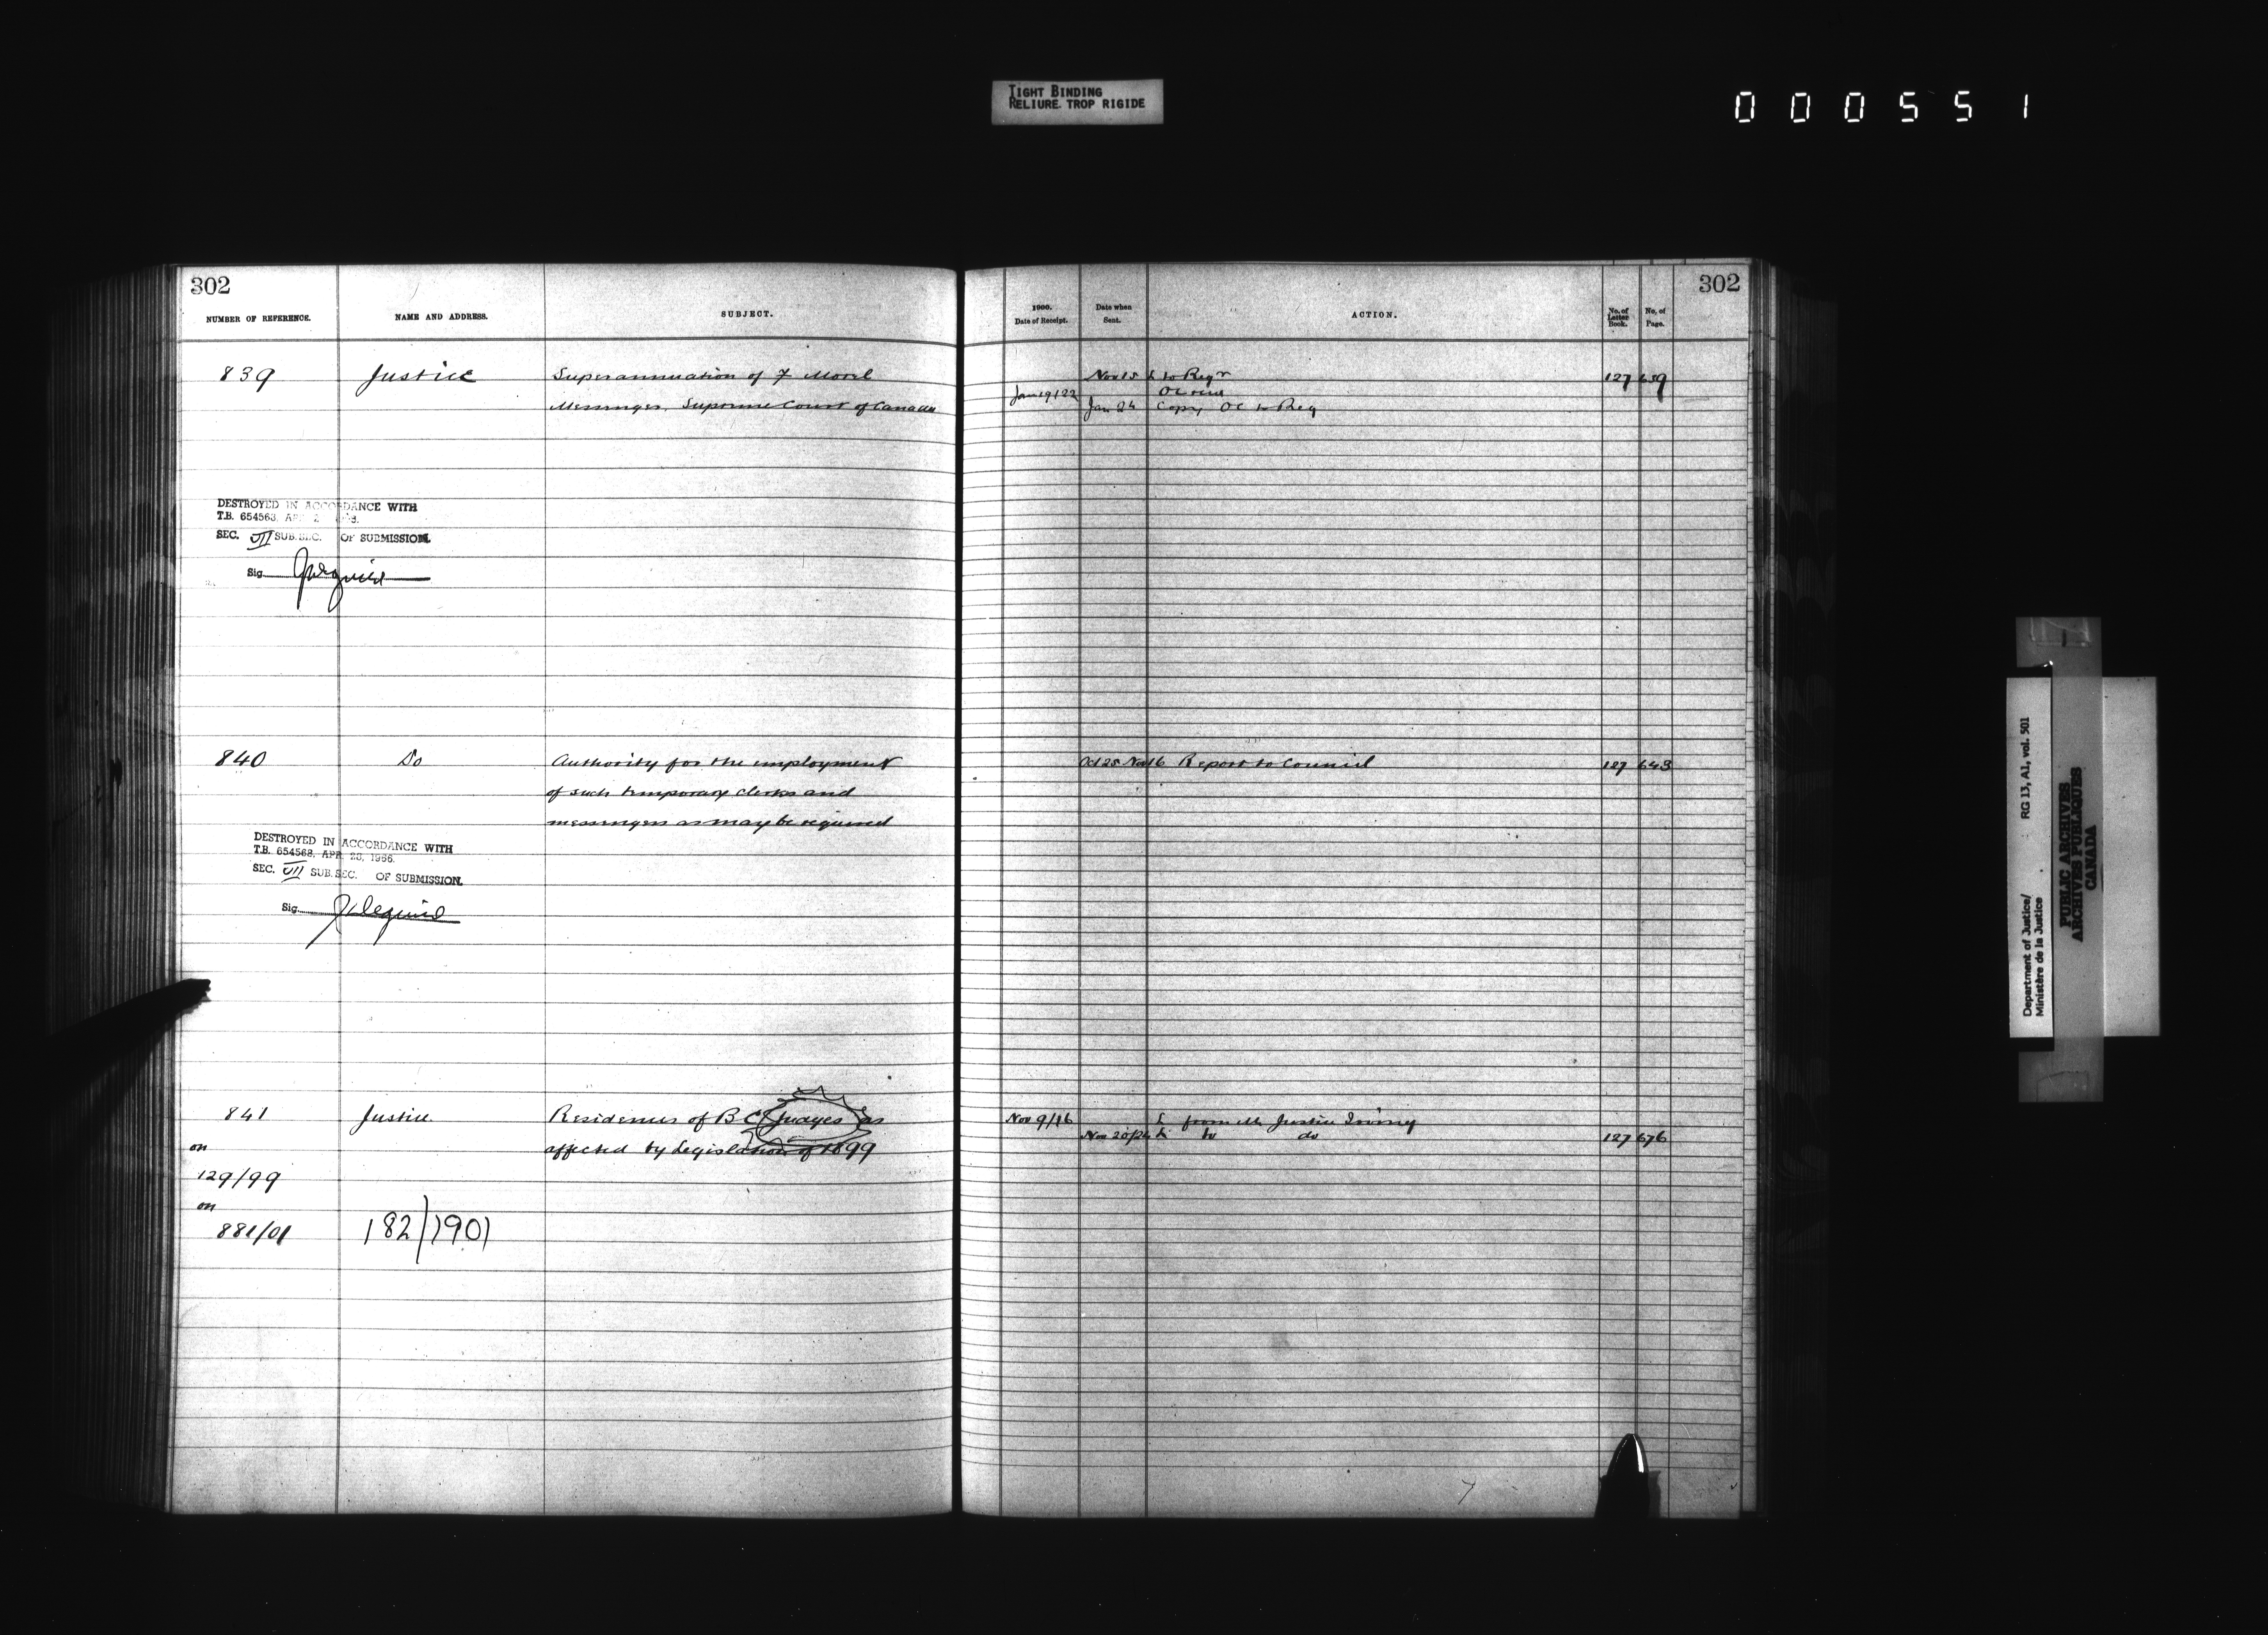 TIGHT BINDING
RELIURE TROP RIGIDE
000551
302
NUMBER OF REFERENCE.
NAME AND ADDRESS.
SUBJECT.
839
Justice
Superannuation of F Morel
Messenger, Supreme Court of Canada
DESTROYED IN ACCORDANCE WITH
T.B. 654563, AP
SEC. VII SUB.SEC. OF SUBMISSION.
Sig
840
Do
Authority for the employment
of such temporary clerks and
messengers as may be required
DESTROYED IN ACCORDANCE WITH
T.B. 654563, APR. 23, 1966.
SEC. VII SUB.SEC. OF SUBMISSION.
Sig
841
Justice
Residences of B C Judges as
on
affected by Legislation of 1899
129/99
on
881/01
182/1901
302
1900.
Date of Receipt.
Date when
Sent.
ACTION.
No. of
Letter
Book.
No. of
Page.
Nov 15 L to Regr
127 639
Jan 19/22
OC
Jan 24 Copy OC to Reg
Oct 25 Nov 16 Report to Council
127 643
Nov 9/16
L from Mr Justice Irving
Nov 20/24 L to do
127 676
Department of Justice/
Ministère de la Justice
RG 13, A1, vol. 501
PUBLIC ARCHIVES
ARCHIVES PUBLIQUES
CANADA